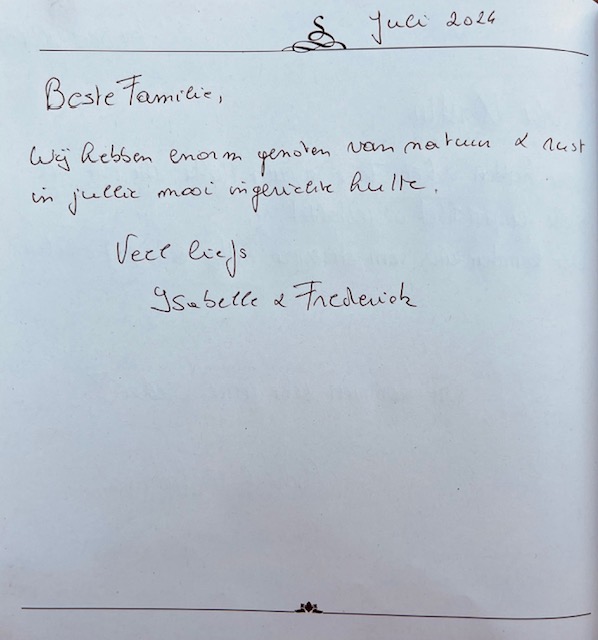 Juli 2024
Beste Familie,
Wij hebben enorm genoten van natuur & rust
in jullie mooi ingerichte hutte.
Veel liefs
Ysabelle & Frederick